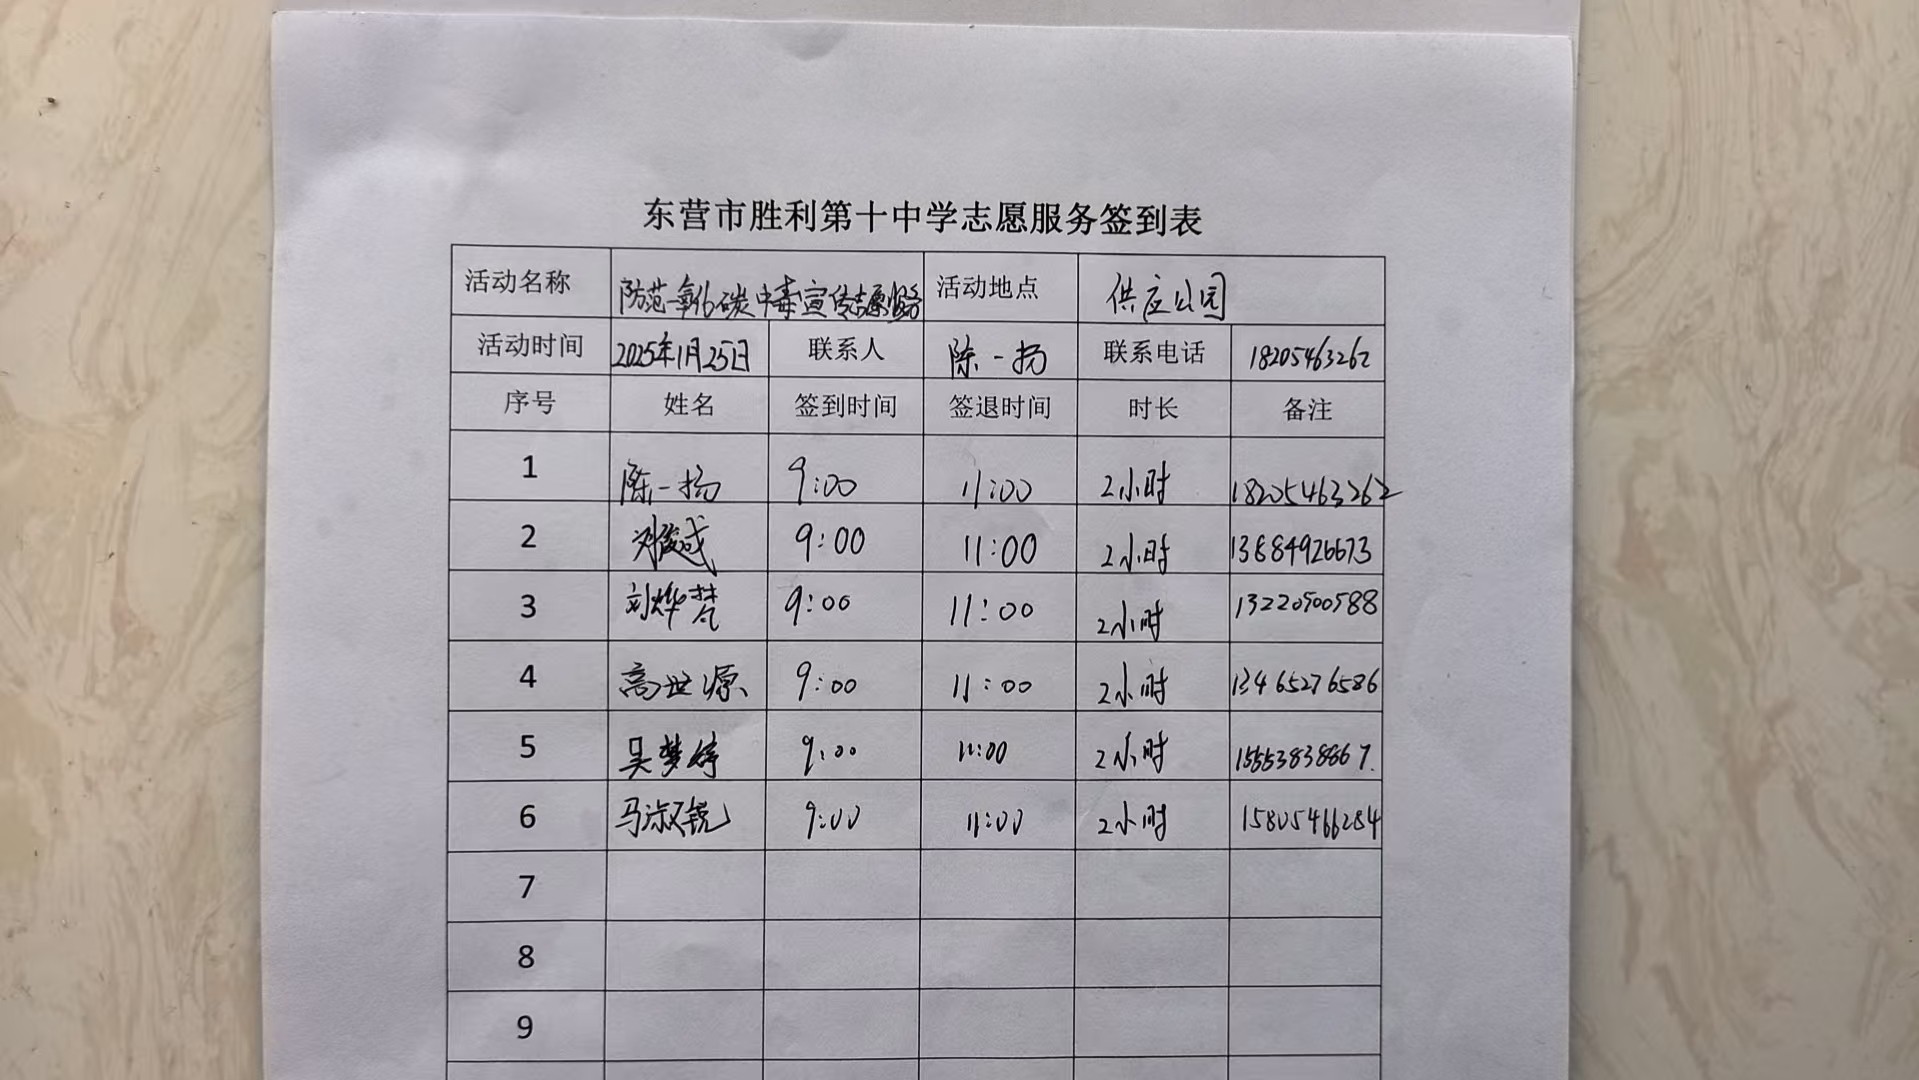 东营市胜利第十中学志愿服务签到表
活动名称 防范一氧化碳中毒宣传志愿服务 活动地点 供应公园
活动时间 2025年1月25日 联系人 陈一扬 联系电话 18205463262
序号 姓名 签到时间 签退时间 时长 备注
1 陈一扬 9:00 11:00 2小时 18205463262
2 9:00 11:00 2小时 13884926673
3 9:00 11:00 2小时 13220500588
4 高世源 9:00 11:00 2小时 13465276586
5 吴梦婷 9:00 11:00 2小时 15553838867.
6 马淑锐 9:00 11:00 2小时 15805466284
7
8
9